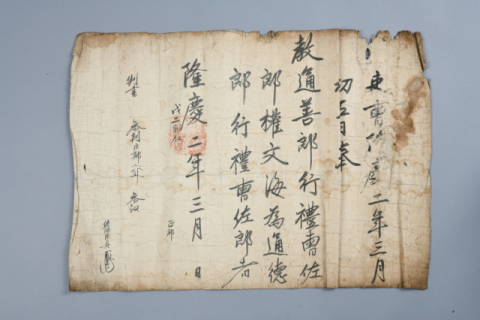 吏曹隆慶二年三月
初五日奉
教通善郎行禮曹佐
郎權文海為通德
郎行禮曹佐郎者
隆慶二年三月 日
正郎
判書 參判臣 參議